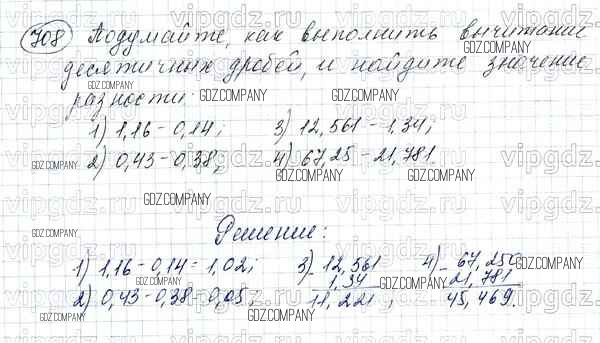 708 Подумайте, как выполнить вычитание
десятичных дробей, и найдите значение
разности:
1) 1,16 - 0,14; 3) 12,561 - 1,34;
2) 0,43 - 0,38; 4) 67,25 - 21,781.
Решение:
1) 1,16 - 0,14 = 1,02; 3) - 12,561 4) - 67,250
2) 0,43 - 0,38 = 0,05; 1,34 21,781
11,221; 45,469.